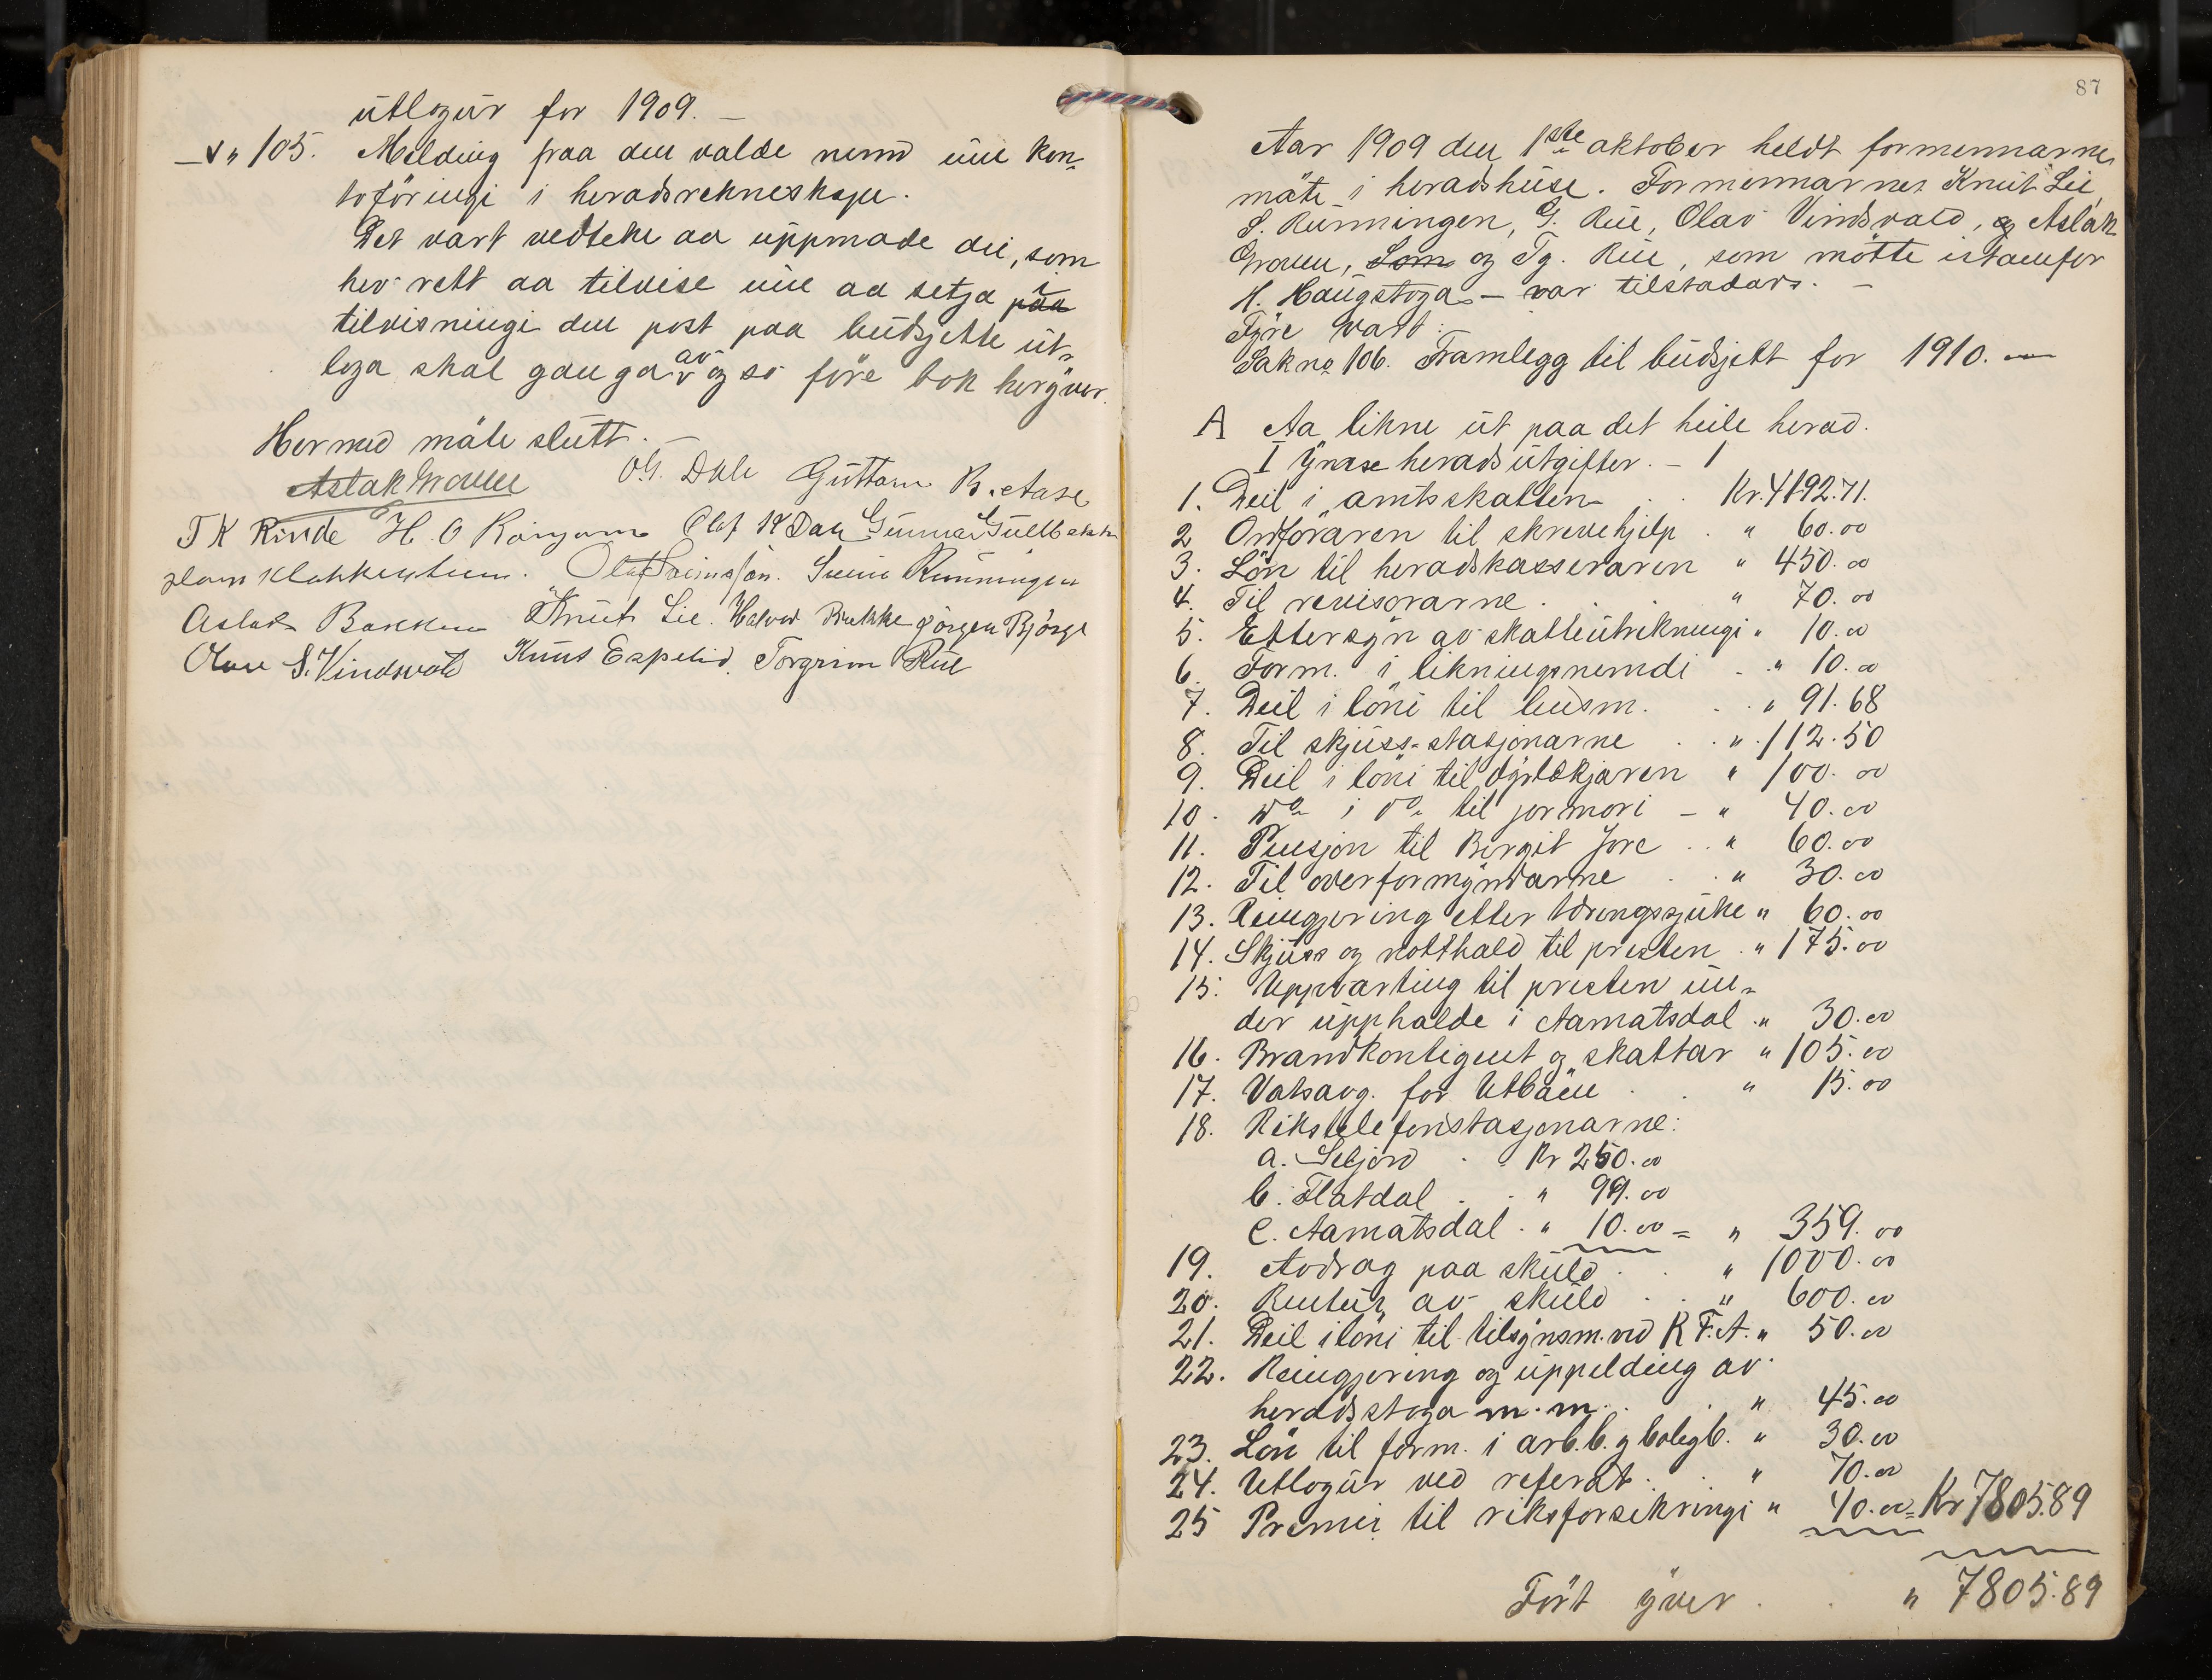 utlogur for 1909. –
–"– 105. Melding fraa den valde nemnd um kon-
toföringi i heradsrekneskapen.
Det vart vedteke aa uppmode dei, som
hev rett aa tilvise um aa setja i paa
tilvisningi den post paa budsjette ut-
loga skal ganga av og so före bok heryver.
Hermed möte slutt. –
Aslak Groven O.G. Dale Guttorm B. Aase
T K Rinde H. O Ol. K Dale Gunnar
Olaf Sveinsson. Svein Runningen
Aslak Bakken Knut Lie. Halvor Brekke Jörgen Björge
Olav S. Vindsvald Knut Espelid. Torgrim Rue
87
Aar 1909 den 1ste oktober heldt formennarne
möte i heradshuse. Formennarne Knut Lie,
S. Runningen, G. Rue, Olav Vindsvald, og Aslak
Groven, Som og Tg. Rue, som mötte istaenfor
H. Haugstoga – var tilstadar. –
Fyre vart:
Sak no 106. Framlegg til budsjett for 1910. –
A Aa likne ut paa det heile herad.
I Ymse heradsutgifter. –
1. Deil i amtsskatten . . Kr. 4192.71.
2 Ordföraren til skrivehjelp . " 60.00
3. Lön til heradskasseraren " 450.00
4. Til revisorarne . " 70.00
5. Ettersyn av skatteutrekningi " 10.00
6. Form. i likningsnemdi . " 10.00
7. Deil i löni til lensm. . " 91.68
8. Til skjuss-stasjonarne . . " 112.50
9. Deil i löni til dyrlækjaren " 100.00
10. do i do til jormori – " 40.00
11. Pensjon til Birgit Jore . . " 60.00
12. Til overformyndarne . . " 30.00
13. Reingjering etter tæringssjuke " 60.00
14. Skjuss og notthald til presten . " 175.00
15. Uppvarting til presten un-
der upphalde i Aamatsdal . " 30.00
16. Brandkontigent og skattar " 105.00
17. Vatsavg. for Utböen . . " 15.00
18. Rikstelefonstasjonarne:
a. Seljord . . Kr 250.00
b. Flatdal . . " 99.00
c. Aamatsdal . " 10.00 = " 359.00
19. Avdrag paa skuld . . " 1000.00
20. Rentur av skuld . . " 600.00
21. Deil i löni til tilsynsm. ved K F. A. " 50.00
22. Reingjering og uppelding av
heradsstoga m. m. . . " 45.00
23. Lön til form. i arb.b. og boligb. " 30.00
24. Utlogur ved referat . . " 70.00
25 Premie til riksforsikringi " 40.00 = Kr 7805.89
Fört yver . . " 7805.89